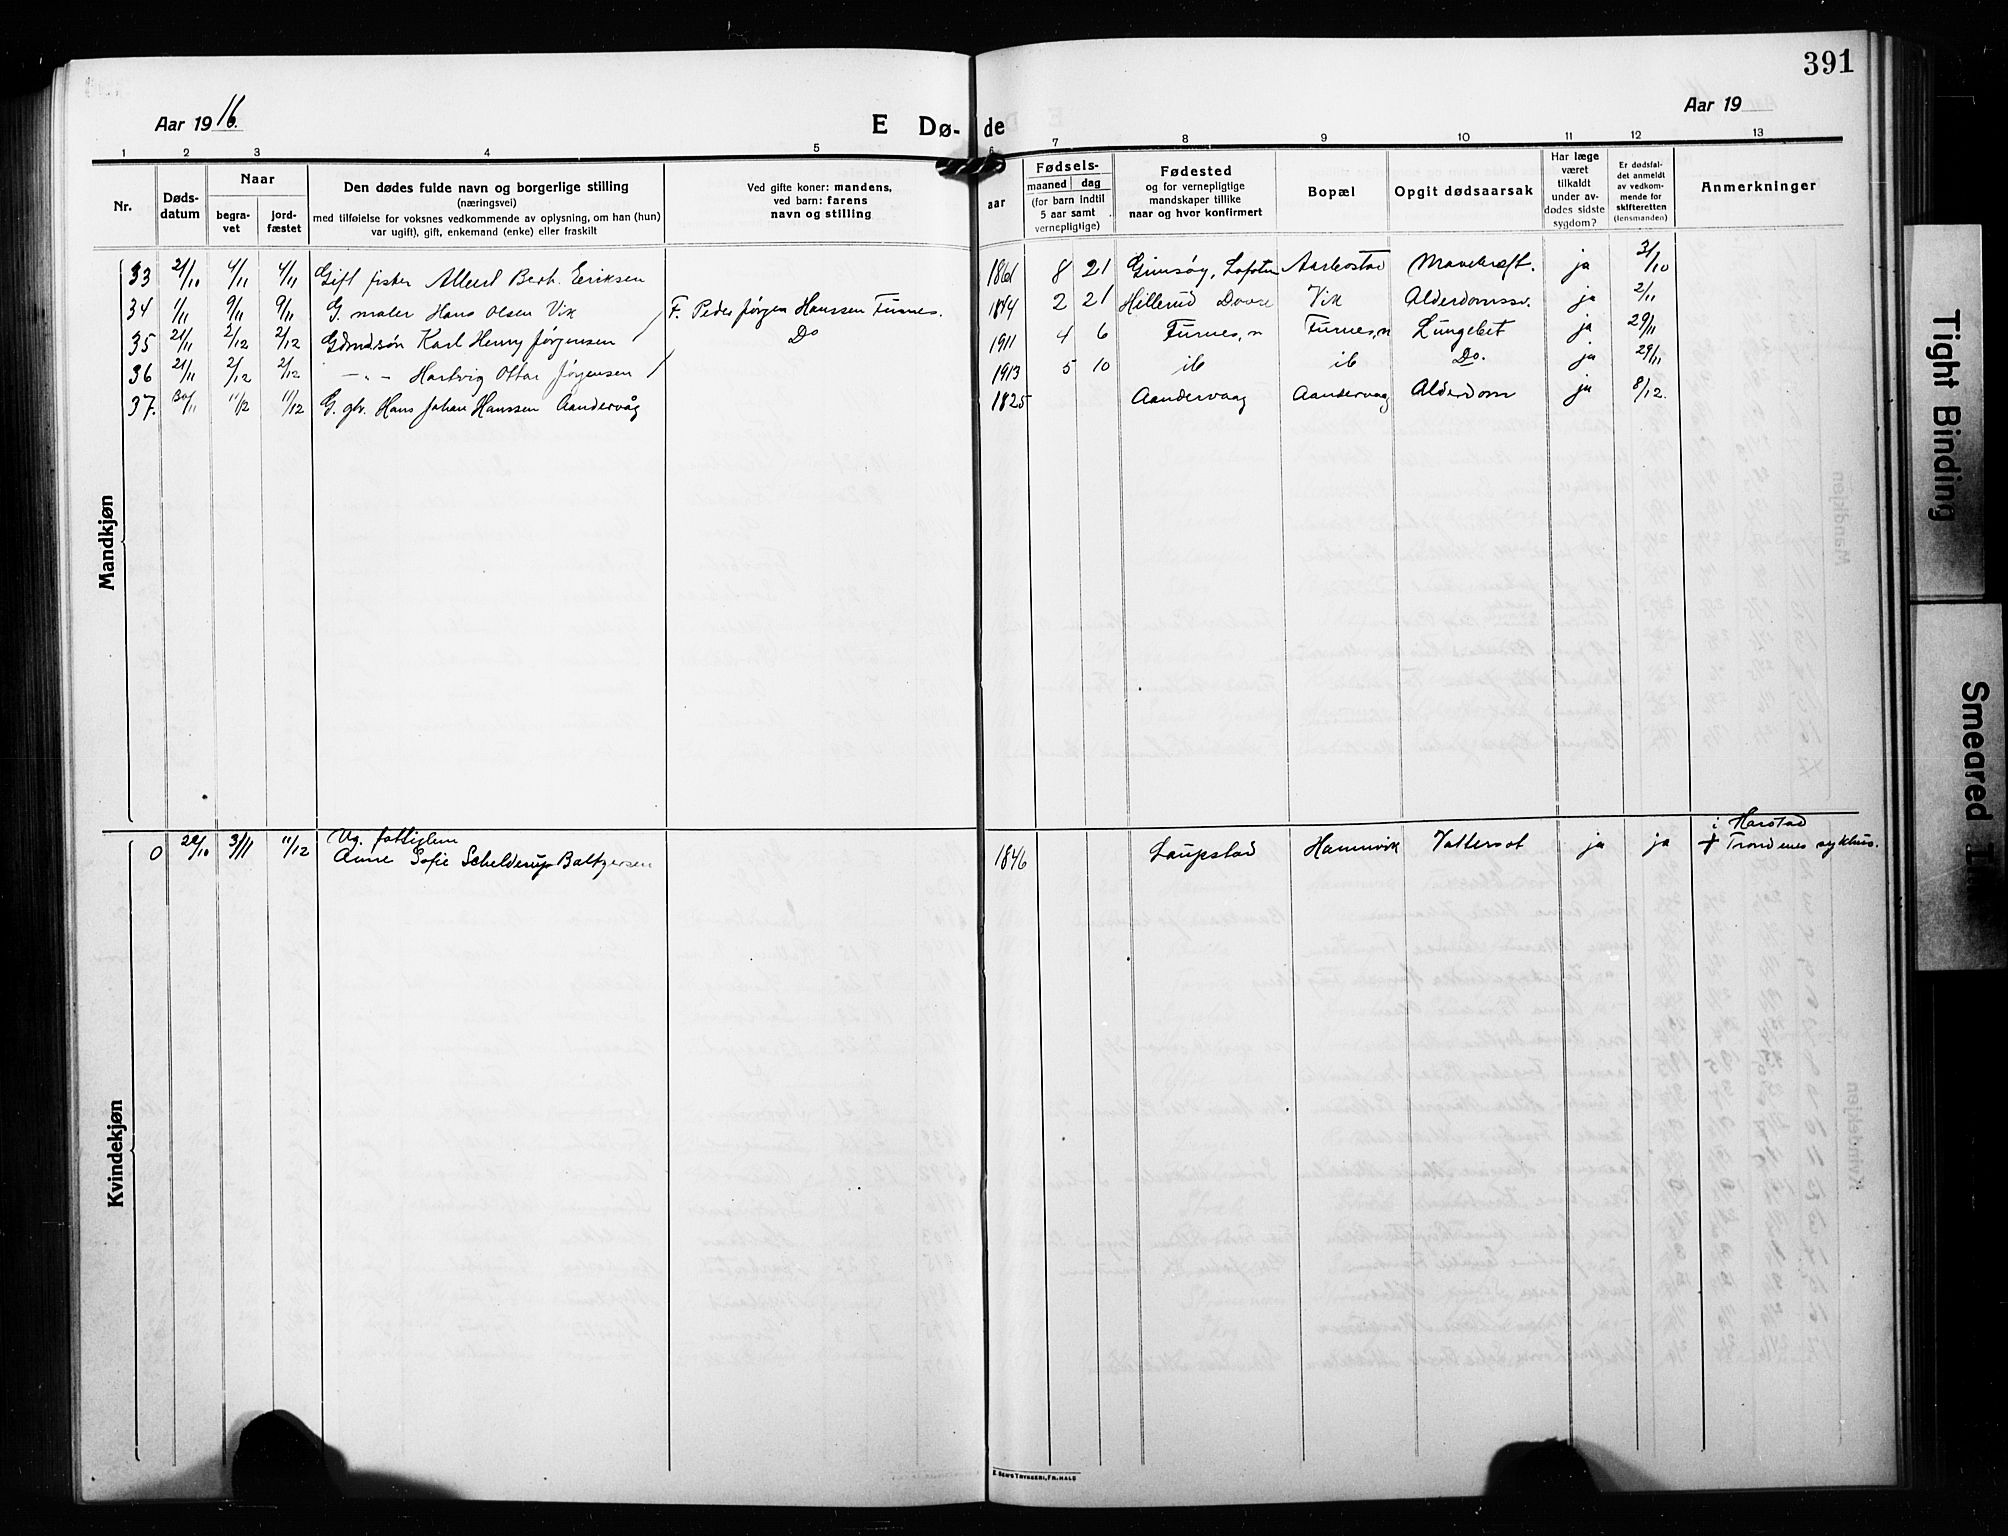 391
Aar 1916.
E Dø- de
Aar 19
1 2 3 4 5 6 7 8 9 10 11 12 13
Nr.
Døds-
datum
Naar
begra-
vet
jord-
fæstet
Den dødes fulde navn og borgerlige stilling
(næringsvei)
med tilføielse for voksnes vedkommende av oplysning, om han (hun)
var ugift), gift, enkemand (enke) eller fraskilt
Ved gifte koner: mandens,
ved barn: farens
navn og stilling
aar
Fødsels-
maaned dag
(for barn indtil
5 aar samt
vernepligtige)
Fødested
og for vernepligtige
mandskaper tillike
naar og hvor konfirmert
Bopæl
Opgit dødsaarsak
Har læge
været
tilkaldt
under av-
dødes sidste
sygdom?
Er dødsfal-
det anmeldt
av vedkom-
mende for
skifteretten
(lensmanden)
Anmerkninger
Mandkjøn
33 21/10 4/11 4/11 Gift fisker Albert Berh. Eriksen 1861 8 21 Gimsøy, Lofoten Mavekræft. ja 31/10
34 1/11 9/11 9/11 G. maler Hans Olsen Vik 1844 2 21 Vik Alderdomssv. ja 2/11
35 21/11 2/12 2/12 Gbmdsøn Karl Henry Jørgensen F. Peder Jørgen Hanssen Furnes. 1911 4 6 Furnes, n Furnes, n Lungebet ja 29/11
36 21/11 2/12 2/12 -"- Hartvig Ottar Jørgensen Do 1913 5 10 ib ib Do. ja 29/11
37. 30/11 11/12 11/12 G. gbr. Hans Johan Hanssen Aandervåg 1825 Aandervaag Aandervaag Alderdom ja 8/12.
Kvindekjøn
0 22/10 3/11 11/12 Ug. fattiglem
Anne Sofie Schelderup Baltzersen 1846 Laupstad Hamnvik Vattersot ja ja i Harstad
+ Trondenes sykhus.
E. SEM'S TRYKKERI, FR.HALD
Tight Binding
Smeared